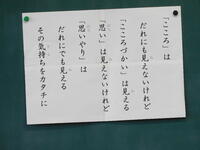 「こころ」は
だれにも見えないけれど
「こころづかい」は見える
「思い」は見えないけれど
「思いやり」は
だれにでも見える
その気持ちをカタチに